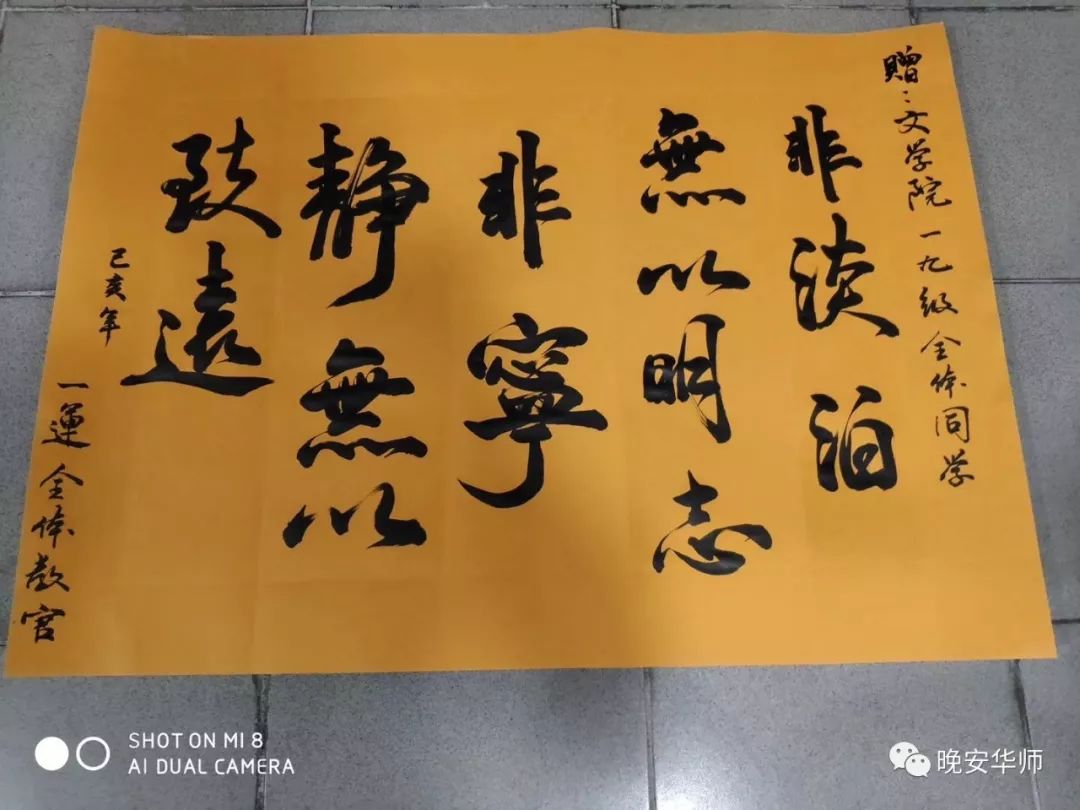 赠：文学院一九级全体同学
非淡泊
無以明志
非寧
静無以
致遠
己亥年
一運全体教官
SHOT ON MI 8
AI DUAL CAMERA
晚安华师